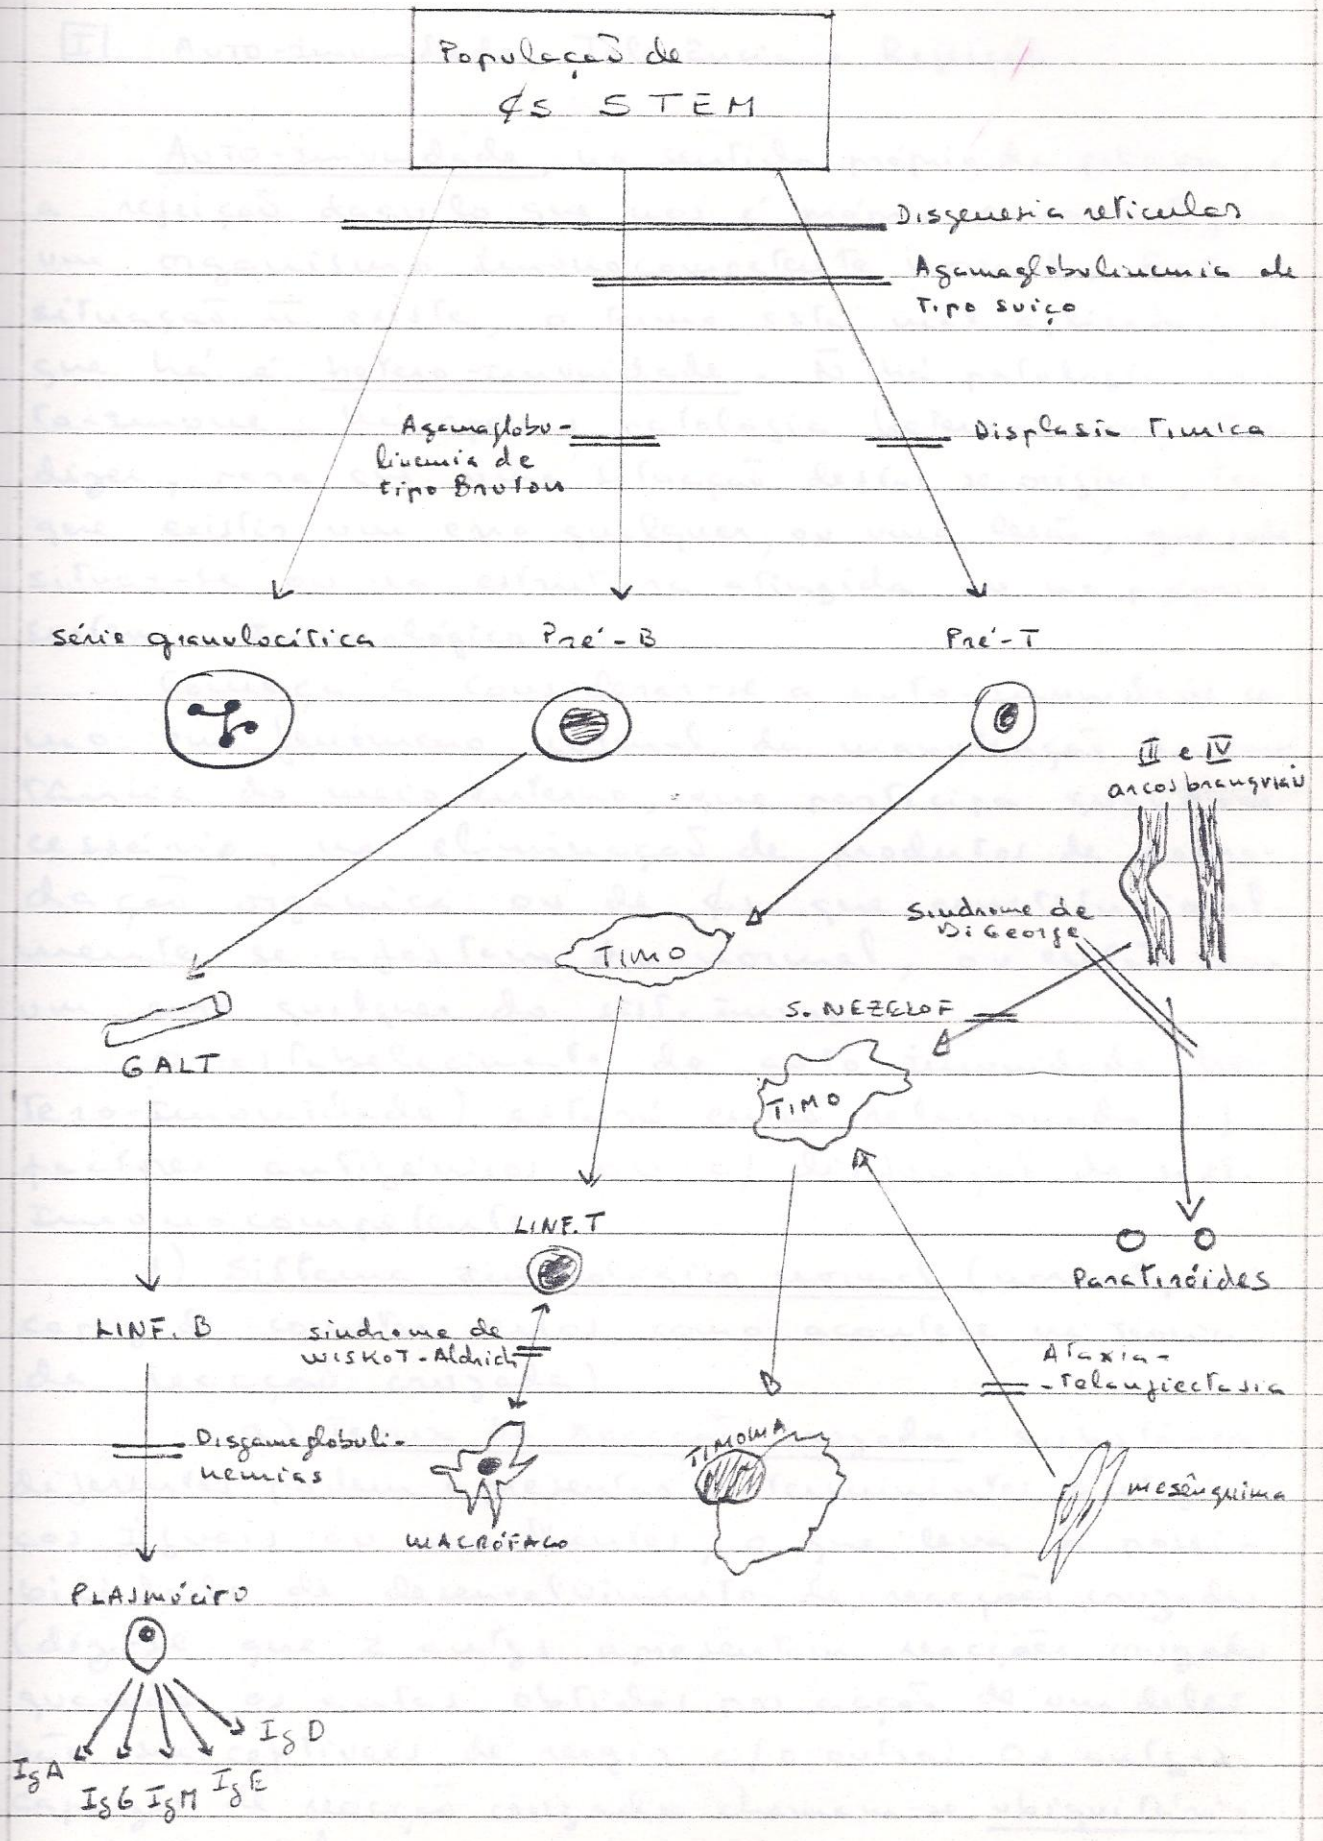 População de
¢s STEM
Disgenesia reticular
Agamaglobulinemia de
Tipo suiço
Agamaglobu-
linemia de
tipo Bruton
Displasia Timica
Série granulocítica
Pré-B
Pré-T
III e IV
arcos branquiais
TIMO
Sindrome de
Di George
S. NEZELOF
GALT
TIMO
LINF. T
Paratiróides
LINF. B
sindrome de
WISKOT-Aldrich
Ataxia-
-Telangiectasia
Disgamaglobuli-
nemias
TIMOMA
mesênquima
MACRÓFAGO
PLASMÓCITO
IgD
IgA
IgG IgM IgE